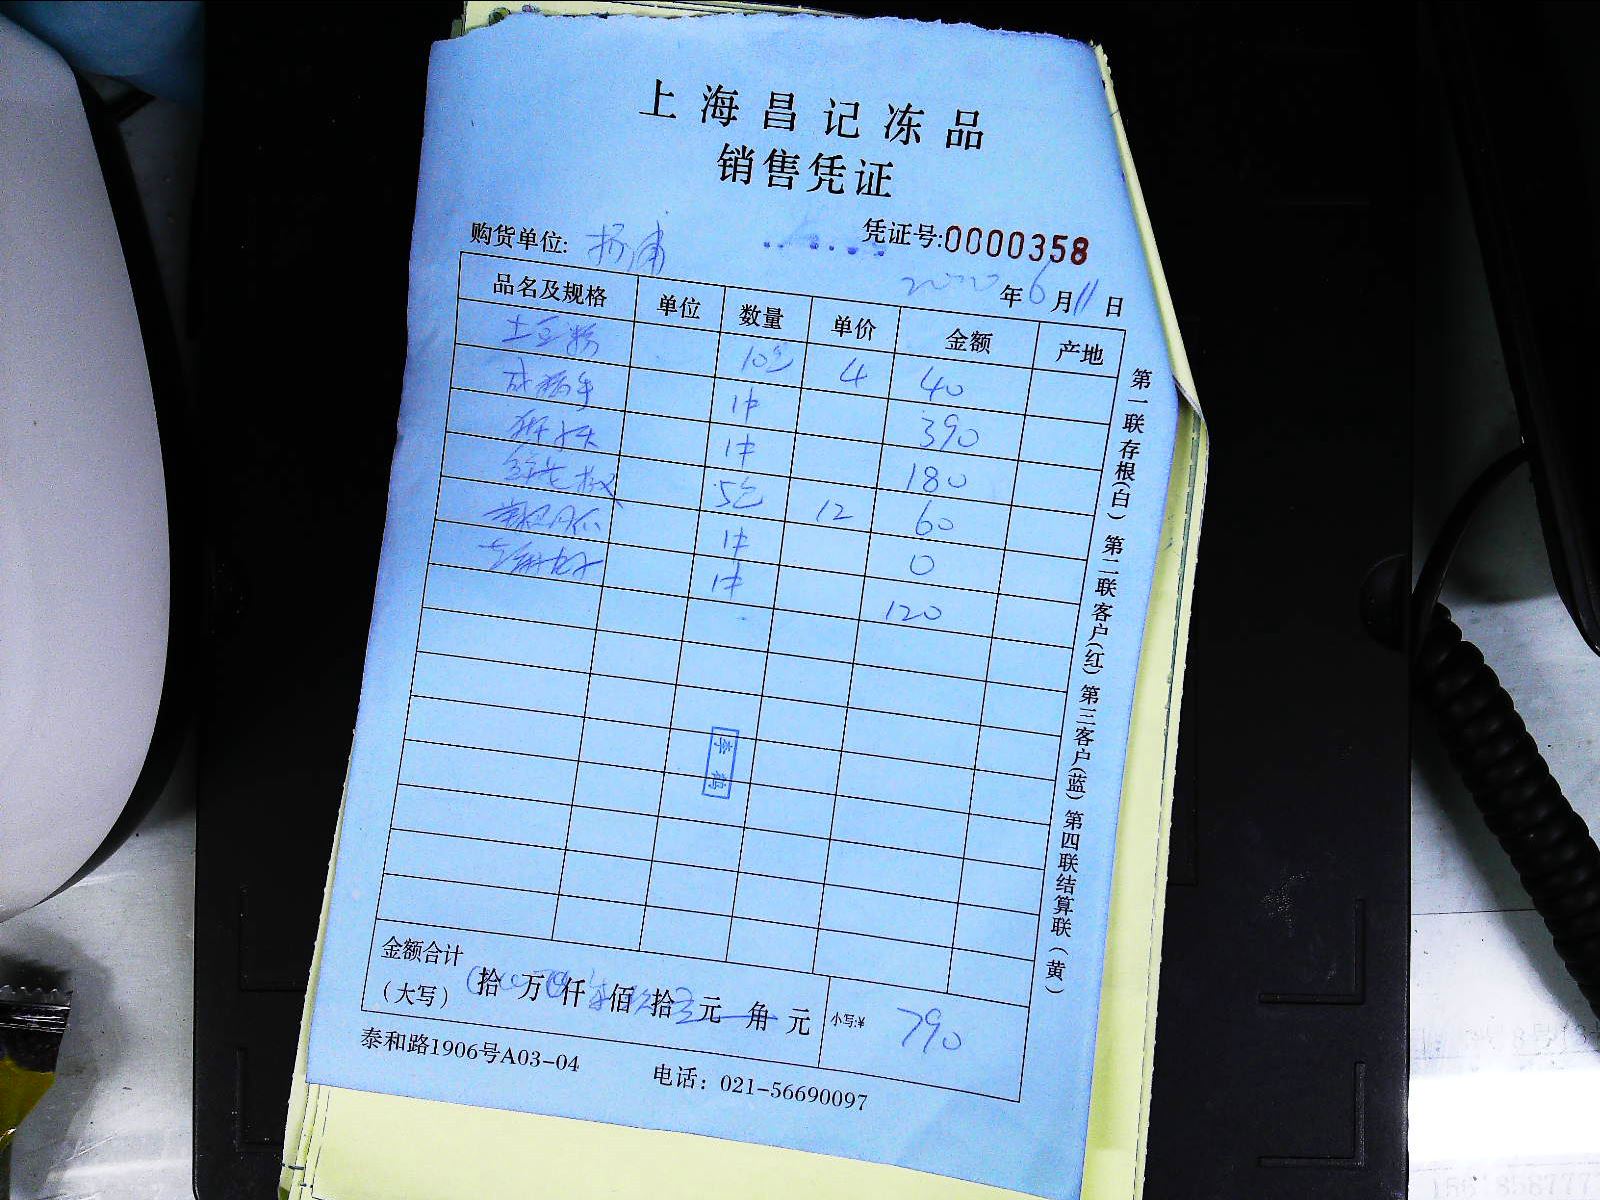 上海昌记冻品
销售凭证
凭证号:0000358
购货单位: 杨浦
2020年6月11日
品名及规格 单位 数量 单价 金额 产地
土豆粉 10包 4 40
1件 390
狮子头 1件 180
5包 12 60
1件 0
1件 120
第一联存根(白) 第二联客户(红) 第三客户(蓝) 第四联结算联(黄)
金额合计
(大写) 拾 万 仟 佰 拾 元 角 元 小写:¥ 790
泰和路1906号A03-04 电话: 021-56690097